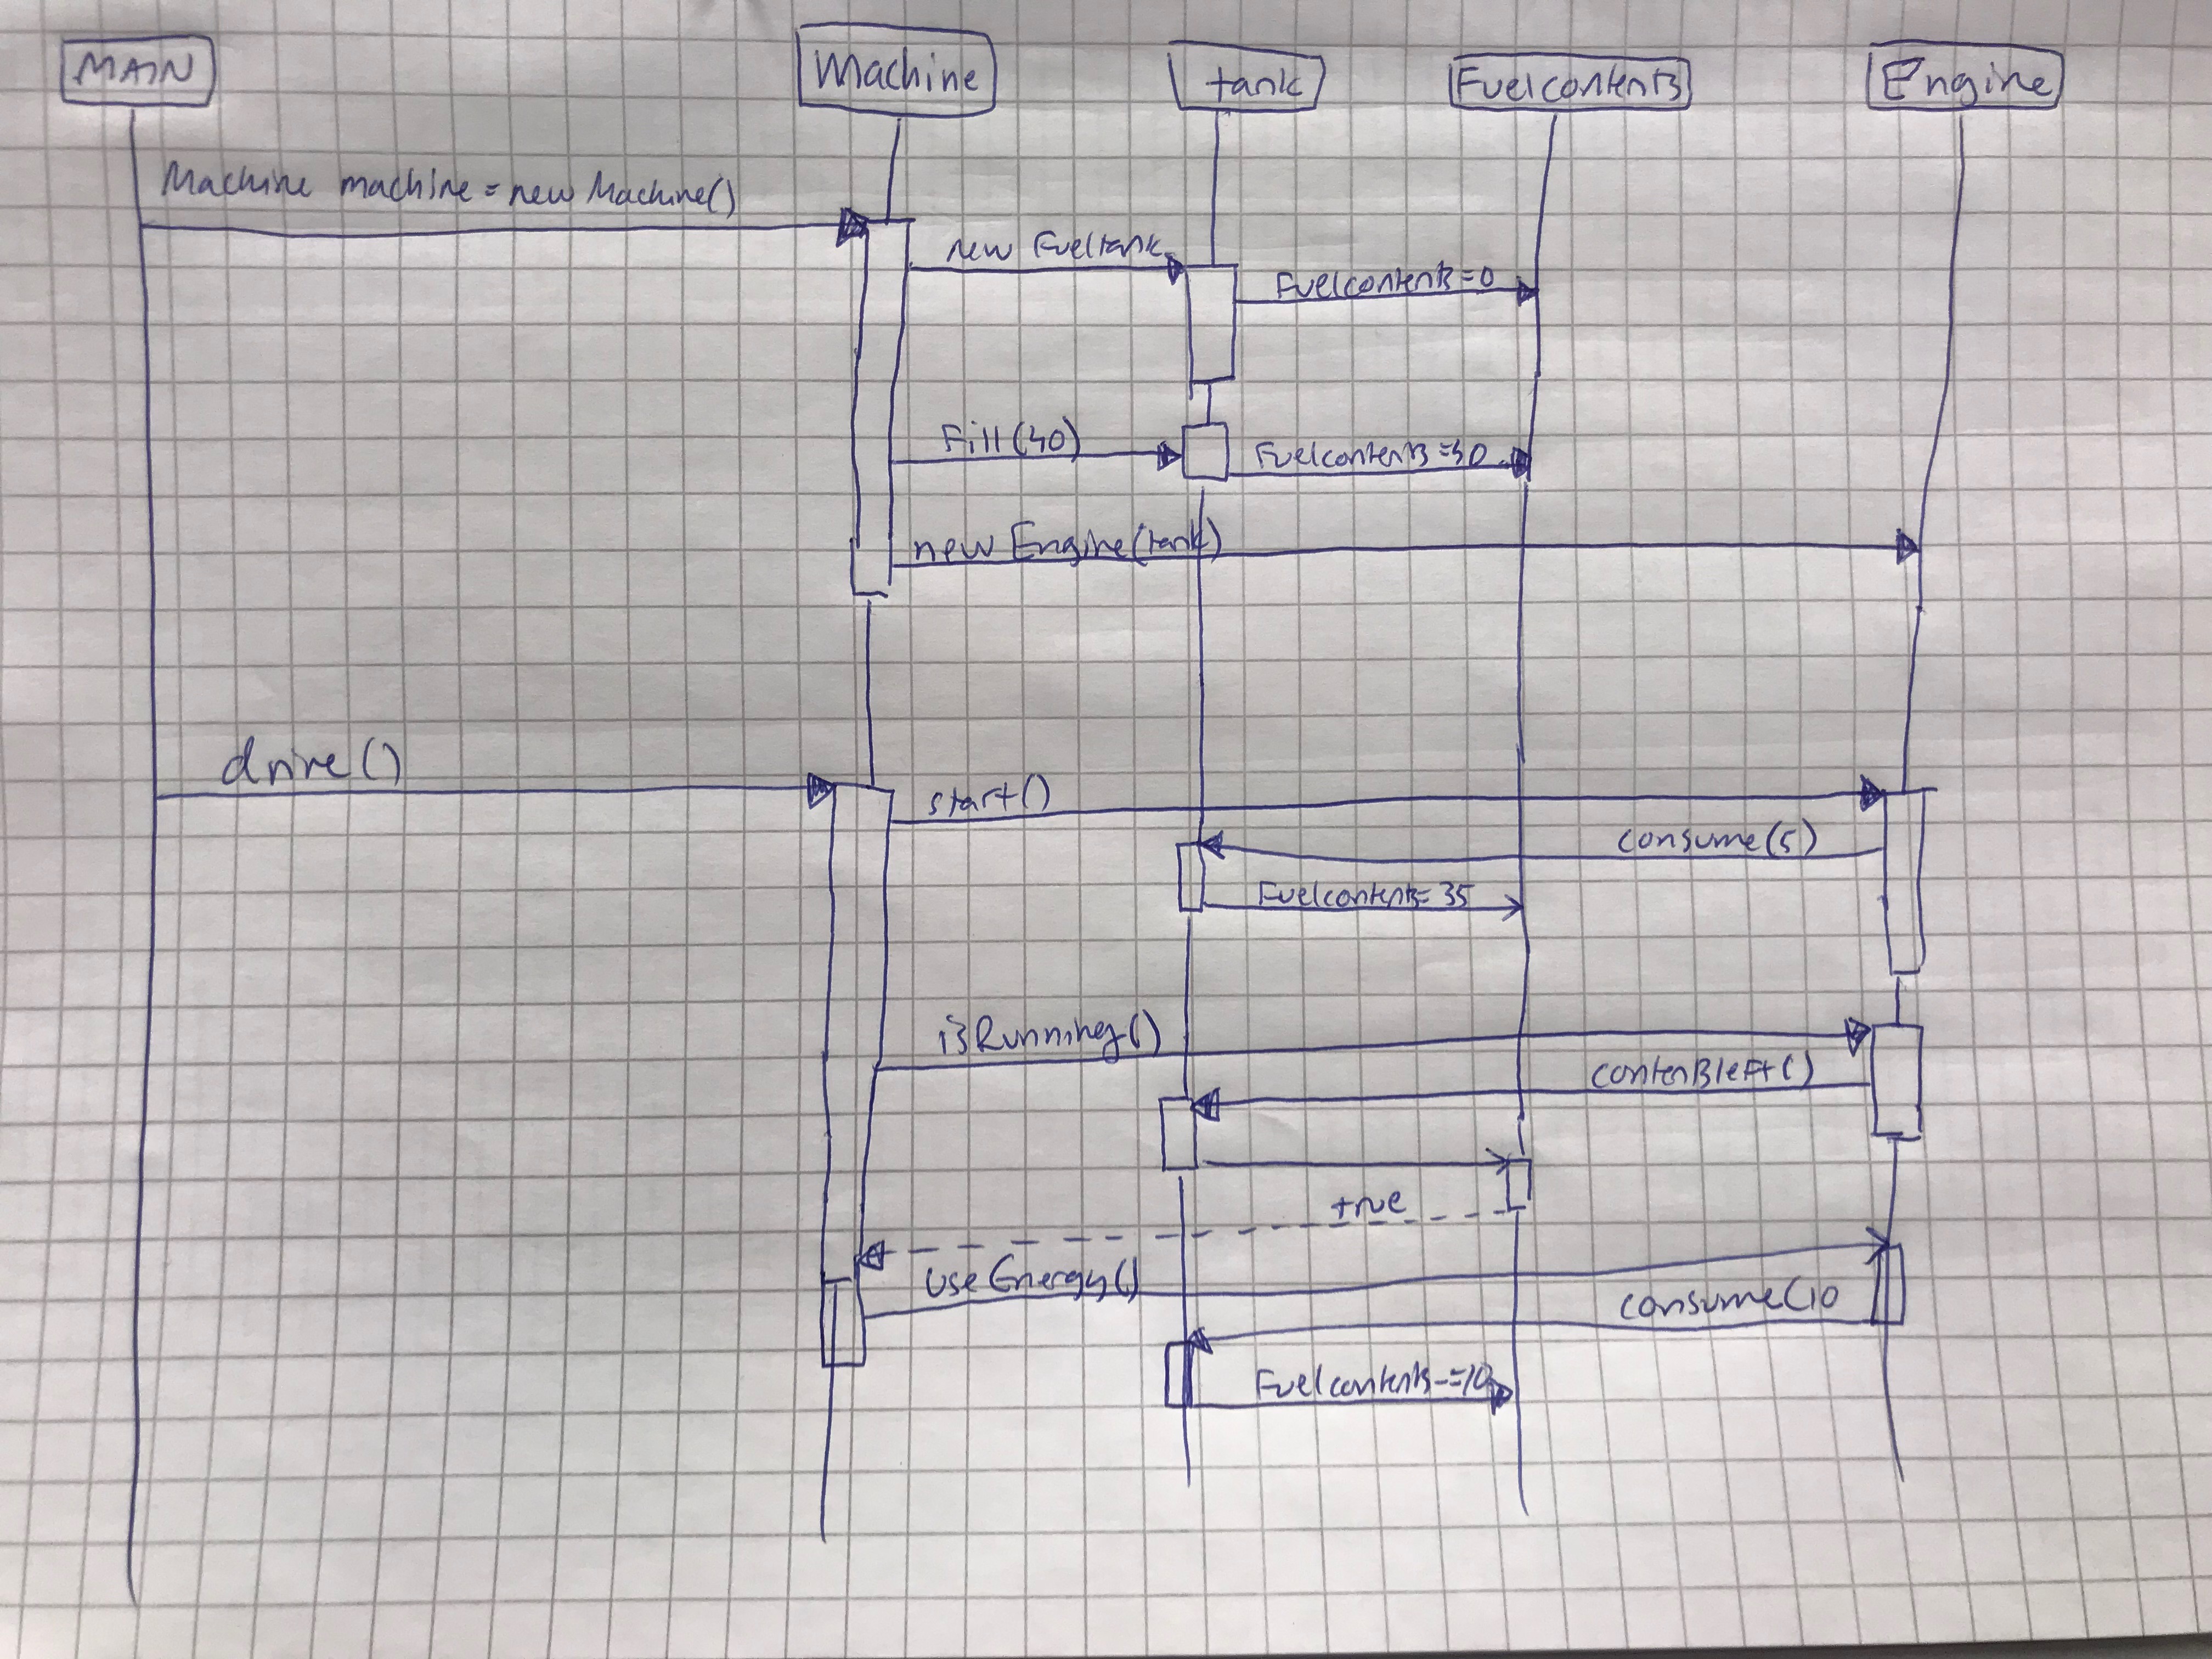 MAIN
Machine
tank
Fuelcontents
Engine
Machine machine = new Machine()
new Fueltank
Fuelcontents = 0
Fill(40)
Fuelcontents = 40
new Engine(tank)
drive()
start()
consume(5)
Fuelcontents = 35
isRunning()
contentsleft()
true
useEnergy()
consume(10
Fuelcontents -= 10